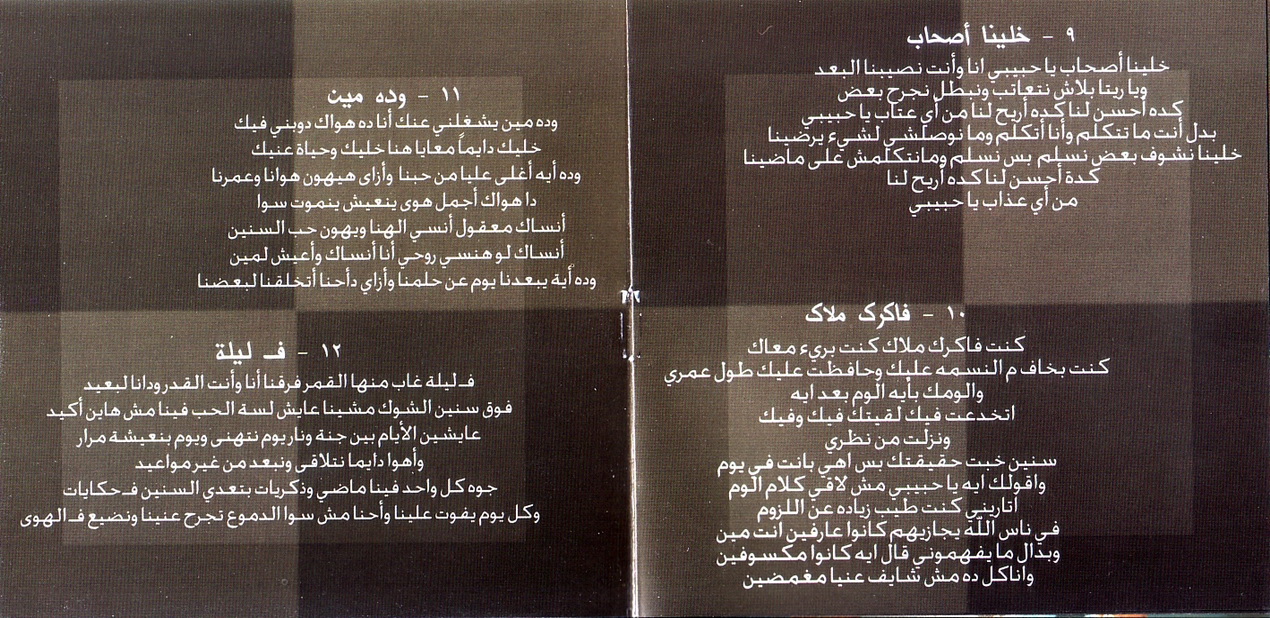 ٩ - خلينا أصحاب
خلينا أصحاب يا حبيبي انا وأنت نصيبنا البعد
ويا ريتنا بلاش نتعاتب ونبطل نجرح بعض
كده احسن لنا كده أريح لنا من أي عتاب يا حبيبي
بدل أنت ما تتكلم وأنا أتكلم وما نوصلشي لشيء يرضينا
خلينا نشوف بعض نسلم بس نسلم ومانتكلمش على ماضينا
كدة أحسن لنا كده أريح لنا
من أي عذاب يا حبيبي
١٠ - فاكرك ملاك
كنت فاكرك ملاك كنت بريء معاك
كنت بخاف م النسمه عليك وحافظت عليك طول عمري
والومك بأيه الوم بعد ايه
اتخدعت فيك لقيتك فيك وفيك
ونزلت من نظري
سنين خبت حقيقتك بس اهي بانت في يوم
واقولك ايه يا حبيبي مش لاقي كلام الوم
أتاريني كنت طيب زياده عن اللزوم
في ناس الله يجازيهم كانوا عارفين انت مين
وبدال ما يفهموني قال ايه كانوا مكسوفين
واناكل ده مش شايف عنيا مغمضين
١١ - وده مين
وده مين يشغلني عنك أنا ده هواك دوبني فيك
خليك دايماً معايا هنا خليك وحياة عنيك
وده أيه أغلى عليا من حبنا وأزاى هيهون هوانا وعمرنا
دا هواك أجمل هوى ينعيش ينموت سوا
أنساك معقول أنسي الهنا ويهون حب السنين
أنساك لو هنسي روحي أنا أنساك وأعيش لمين
وده أية يبعدنا يوم عن حلمنا وأزاي دأحنا أتخلقنا لبعضنا
١٢ - فـ ليلة
فـ ليلة غاب منها القمر فرقنا أنا وأنت القدر ودانا لبعيد
فوق سنين الشوك مشينا عايش لسة الحب فينا مش هاين أكيد
عايشين الأيام بين جنة ونار يوم نتهنى ويوم بنعيشة مرار
وأهوا دايما نتلاقى ونبعد من غير مواعيد
جوه كل واحد فينا ماضي وذكريات بتعدي السنين فـ حكايات
وكل يوم يفوت علينا وأحنا مش سوا الدموع تجرح عنينا ونضيع فـ الهوى